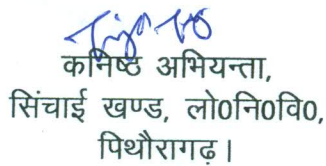 कनिष्ठ अभियन्ता,
सिंचाई खण्ड, लो0नि0वि0,
पिथौरागढ़।